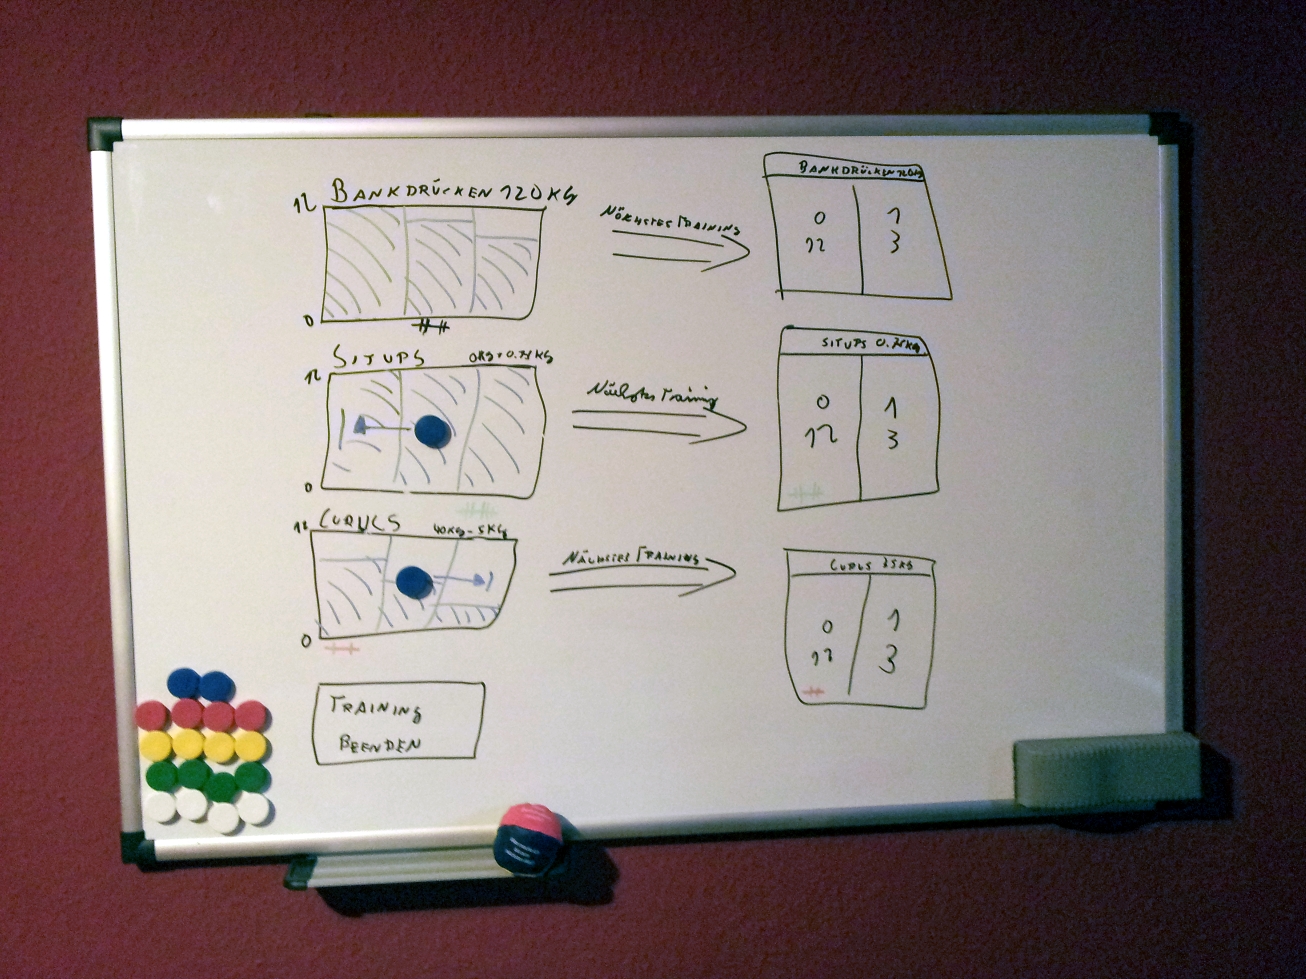 12 BANKDRÜCKEN 120KG
0
NÄCHSTES TRAINING
BANKDRÜCKEN 120KG
0 1
12 3
SITUPS 0KG+0.75KG
12
0
Nächstes Training
SITUPS 0.75KG
0 1
12 3
12 CURLS 40KG-5KG
0
NÄCHSTES TRAINING
CURLS 35KG
0 1
12 3
TRAINING
BEENDEN